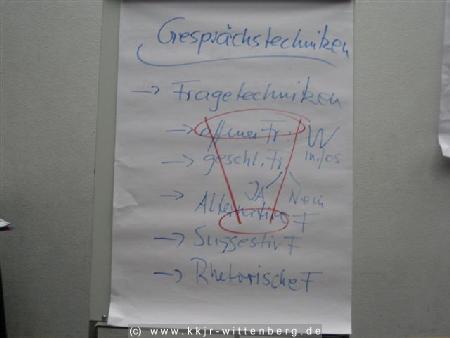 Gesprächstechniken
→ Fragetechniken
→ offener Fr. W
infos
→ geschl. Fr.
JA Nein
→ Alternativ F
→ Suggestiv F
→ Rhetorische F
(c) www.kkjr-wittenberg.de